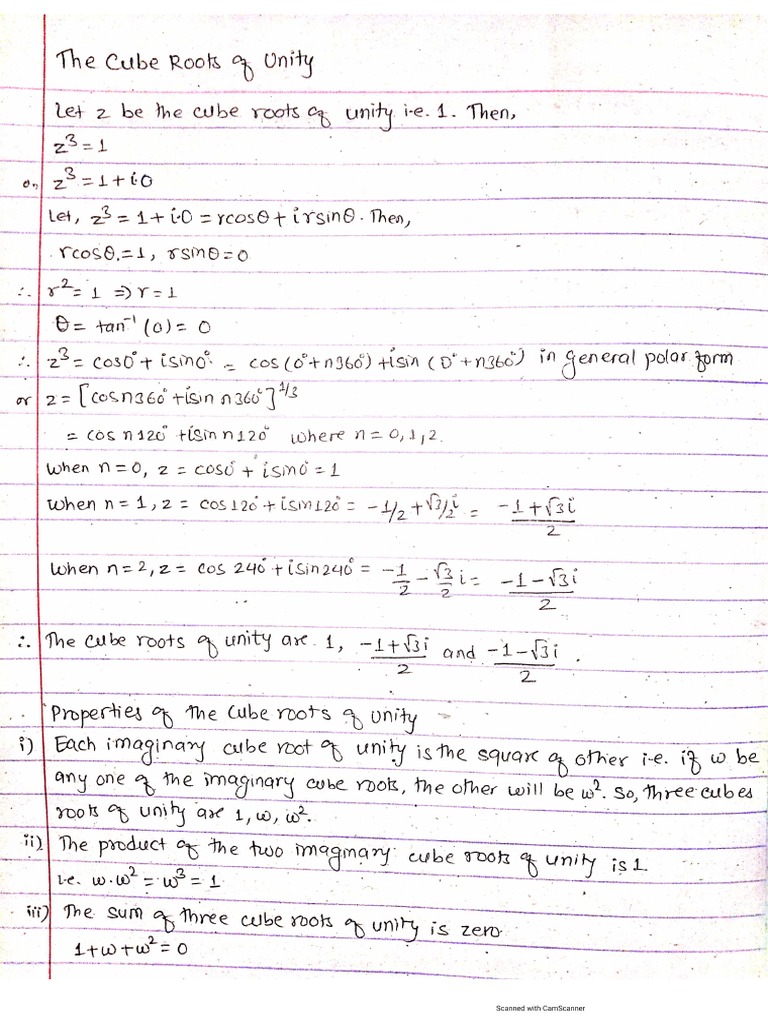 The Cube Roots of Unity
Let z be the cube roots of unity i.e. 1. Then,
z³ = 1
or, z³ = 1 + i·0
Let, z³ = 1 + i·0 = rcosθ + i rsinθ. Then,
rcosθ = 1, rsinθ = 0
∴ r² = 1 ⇒ r = 1
θ = tan⁻¹ (0) = 0
∴ z³ = cos0° + isin0° = cos (0° + n360°) + isin (0° + n360°) in general polar form
or z = [cosn360° + isin n360°]^1/3
= cos n120° + isin n120° where n = 0, 1, 2.
when n = 0, z = cos0° + isin0° = 1
when n = 1, z = cos120° + isin120° = -1/2 + √3/2 i = (-1+√3i)/2
when n = 2, z = cos 240° + isin240° = -1/2 - √3/2 i = (-1-√3i)/2
∴ The cube roots of unity are 1, (-1+√3i)/2 and (-1-√3i)/2.
Properties of the cube roots of unity
i) Each imaginary cube root of unity is the square of other i.e. if w be
any one of the imaginary cube roots, the other will be w². So, three cubes
roots of unity are 1, w, w².
ii) The product of the two imaginary cube roots of unity is 1
i.e. w·w² = w³ = 1
iii) The sum of three cube roots of unity is zero
1 + w + w² = 0
Scanned with CamScanner